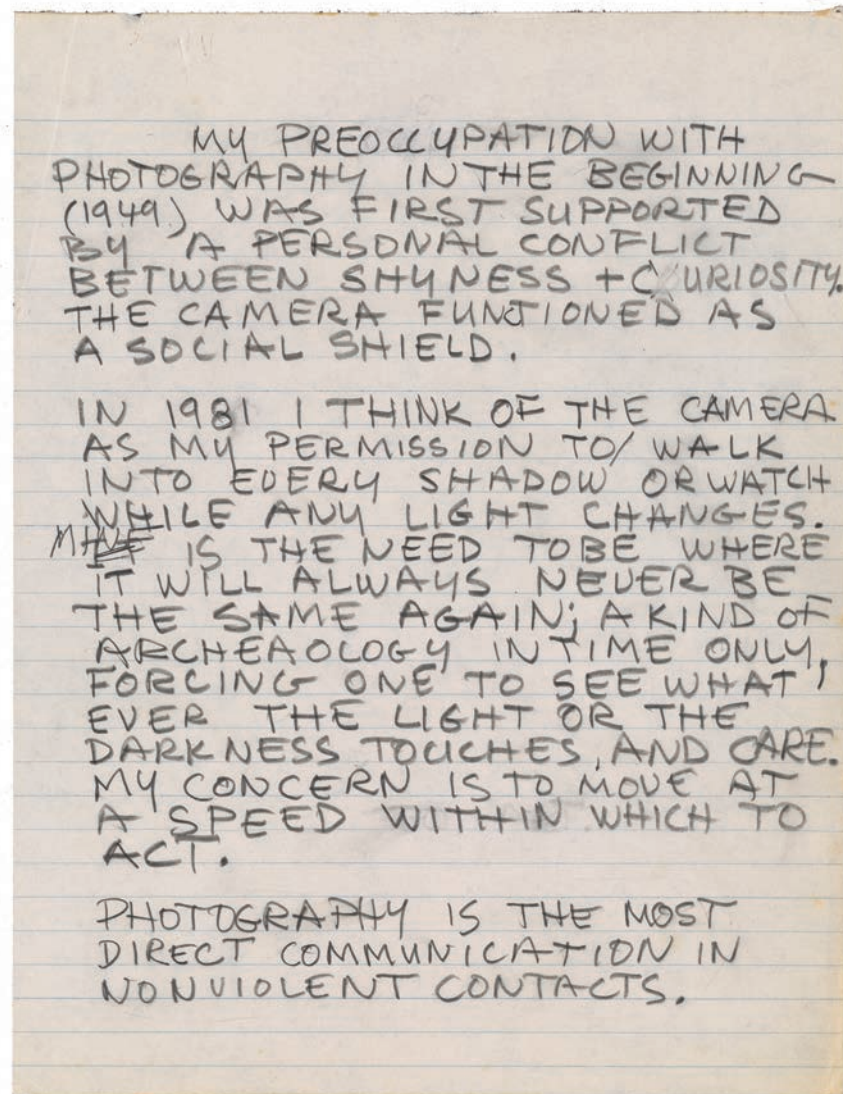 MY PREOCCUPATION WITH
PHOTOGRAPHY IN THE BEGINNING
(1949) WAS FIRST SUPPORTED
BY A PERSONAL CONFLICT
BETWEEN SHYNESS + CURIOSITY.
THE CAMERA FUNCTIONED AS
A SOCIAL SHIELD.
IN 1981 I THINK OF THE CAMERA
AS MY PERMISSION TO/ WALK
INTO EVERY SHADOW OR WATCH
WHILE ANY LIGHT CHANGES.
MINE IS THE NEED TO BE WHERE
IT WILL ALWAYS NEVER BE
THE SAME AGAIN; A KIND OF
ARCHEAOLOGY IN TIME ONLY,
FORCING ONE TO SEE WHAT,
EVER THE LIGHT OR THE
DARKNESS TOUCHES, AND CARE.
MY CONCERN IS TO MOVE AT
A SPEED WITHIN WHICH TO
ACT.
PHOTOGRAPHY IS THE MOST
DIRECT COMMUNICATION IN
NONVIOLENT CONTACTS.